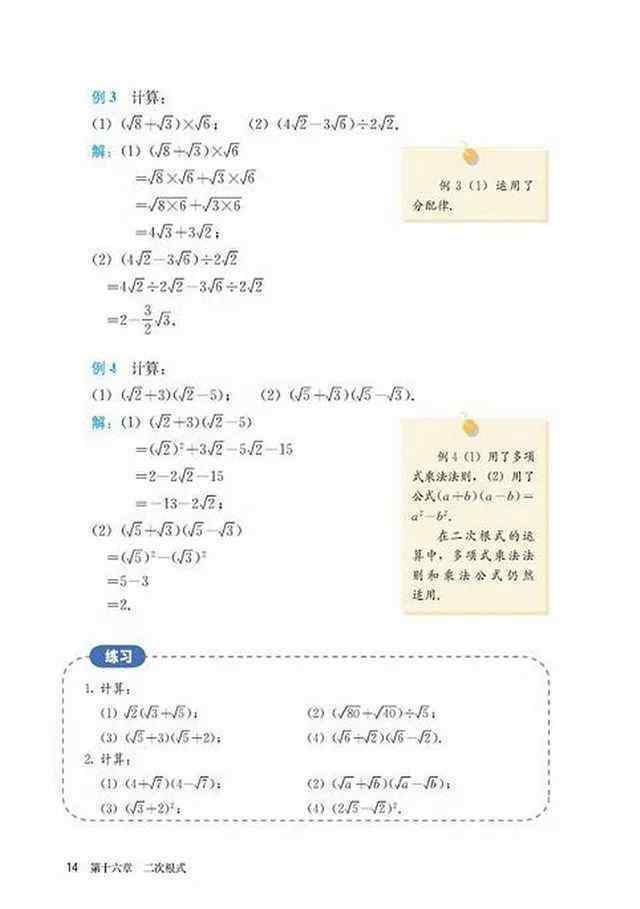 例3 计算：
(1) (√8+√3)×√6； (2) (4√2−3√6)÷2√2.
解：(1) (√8+√3)×√6
=√8×√6+√3×√6
=√(8×6)+√(3×6)
=4√3+3√2；
(2) (4√2−3√6)÷2√2
=4√2÷2√2−3√6÷2√2
=2−3/2√3.
例3(1)运用了
分配律.
例4 计算：
(1) (√2+3)(√2−5)； (2) (√5+√3)(√5−√3).
解：(1) (√2+3)(√2−5)
=(√2)²+3√2−5√2−15
=2−2√2−15
=−13−2√2；
(2) (√5+√3)(√5−√3)
=(√5)²−(√3)²
=5−3
=2.
例4(1)用了多项
式乘法法则，(2)用了
公式(a+b)(a−b)=
a²−b².
在二次根式的运
算中，多项式乘法法
则和乘法公式仍然
适用.
练习
1. 计算：
(1) √2(√3+√5)； (2) (√80+√40)÷√5；
(3) (√5+3)(√5+2)； (4) (√6+√2)(√6−√2).
2. 计算：
(1) (4+√7)(4−√7)； (2) (√a+√b)(√a−√b)；
(3) (√3+2)²； (4) (2√5−√2)².
14 第十六章 二次根式